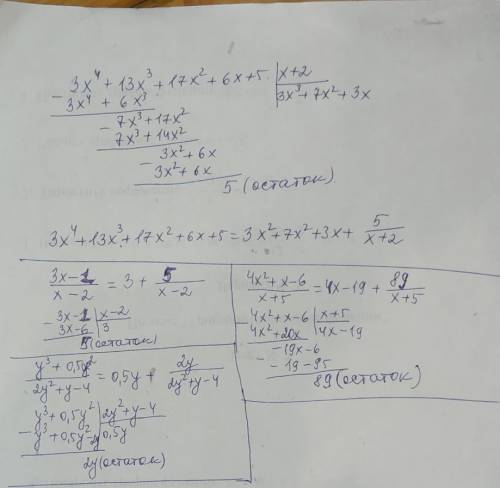 3x⁴ + 13x³ + 17x² + 6x + 5 | x+2
- 3x⁴ + 6x³ | 3x³+7x²+3x
- 7x³ + 17x²
7x³ + 14x²
- 3x² + 6x
3x² + 6x
5 (остаток)
3x⁴ + 13x³ + 17x² + 6x + 5 = 3x² + 7x² + 3x + 5/(x+2)
(3x-1)/(x-2) = 3 + 5/(x-2)
- 3x-1 | x-2
3x-6 | 3
5 (остаток)
(y³ + 0,5y²)/(2y²+y-4) = 0,5y + 2y/(2y²+y-4)
- y³ + 0,5y² | 2y²+y-4
y³ + 0,5y² - 2y | 0,5y
2y (остаток)
(4x²+x-6)/(x+5) = 4x-19 + 89/(x+5)
- 4x²+x-6 | x+5
4x²+20x | 4x-19
-19x-6
- -19-95
89 (остаток)